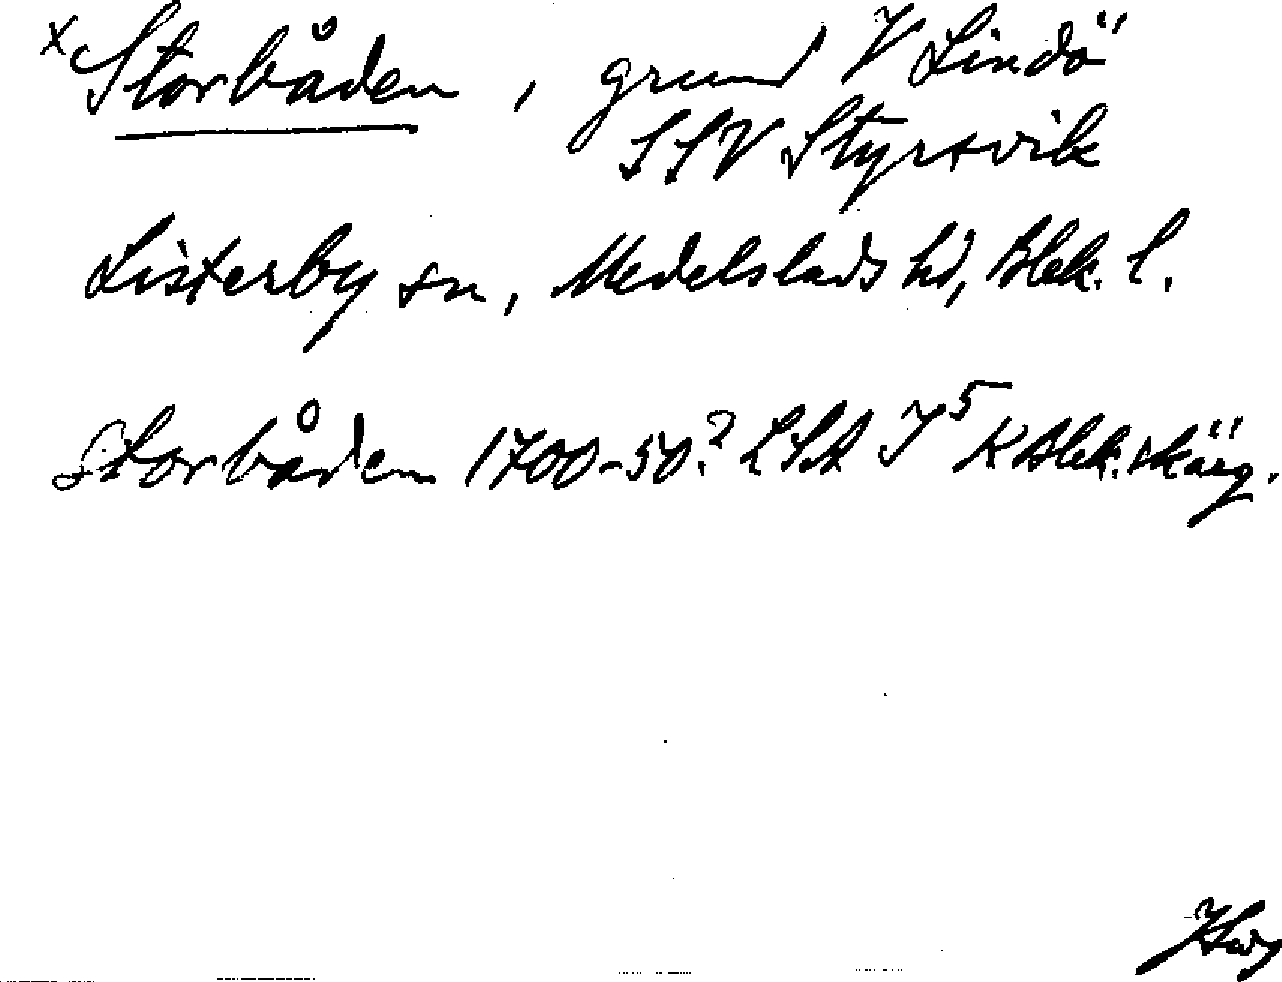 x Storbåden, grund V Lindö
SSV Styrsvik
Listerby sn, Medelstads hd, Blek. l.
Storbåden 1700-50? LSA J⁵ K Blek. skärg.